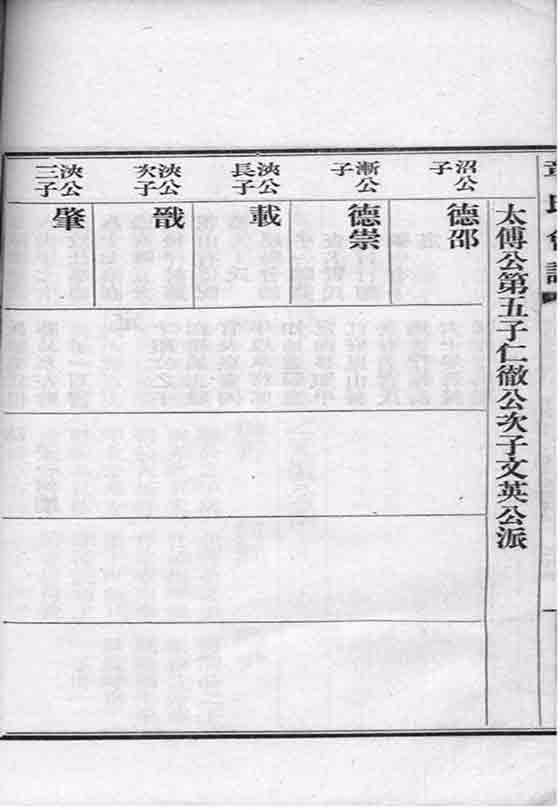 章氏會譜
太傅公第五子仁徹公次子文英公派
沼公子
德邵
漸公子
德崇
浹公長子
載
浹公次子
戩
浹公三子
肇